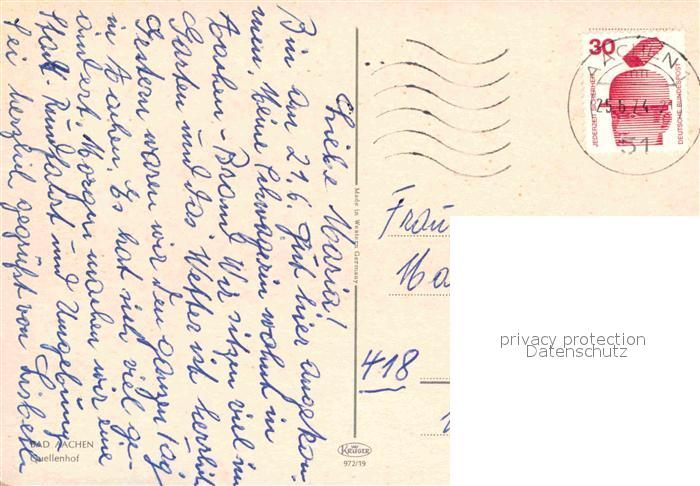 Liebe Maria!
Bin am 21.6. gut hier angekom-
men. Meine Schwägerin wohnt in
Aachen-Brand. Wir sitzen viel im
Garten und das Wetter ist herrlich
Gestern waren wir den ganzen Tag
in Aachen. Es hat sich viel ge-
ändert. Morgen machen wir eine
Stadt-Rundfahrt und Umgebung
Sei herzlich gegrüßt von Lisbeth
BAD AACHEN
Quellenhof
Made in Western Germany
KRÜGER
972/19
30
JEDERZEIT SICHERHEIT
DEUTSCHE BUNDESPOST
AACHEN
25.6.74-21
51
Frau
Ma
418
privacy protection
Datenschutz